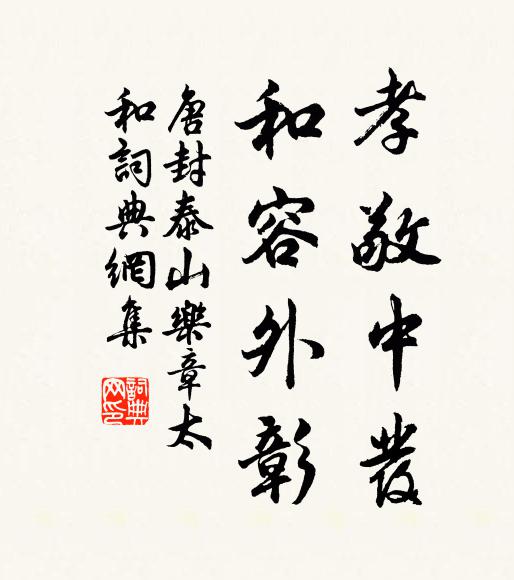 孝敬中發
和容外彰
唐封泰山樂章太
和詞典網集
詞典
网印